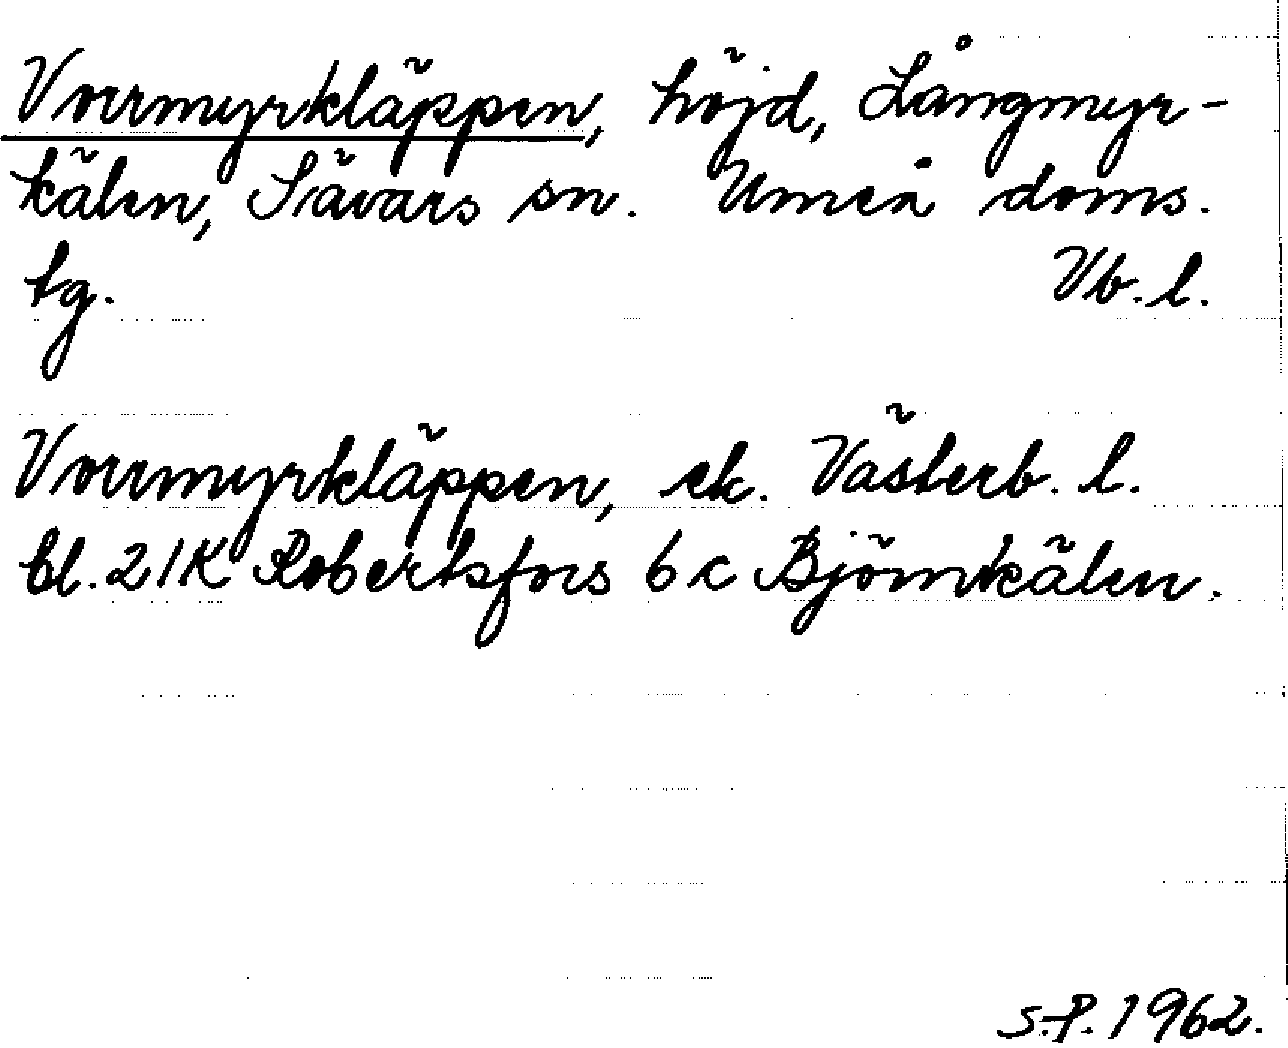 Vorrmyrkläppen, höjd, Långmyr-
kälen, Sävars sn. Umeå doms.
tg. Vb. l.
Vorrmyrkläppen, ek. Västerb. l.
bl. 21K Robertsfors 6 c Björnkälen.
S.P. 1962.